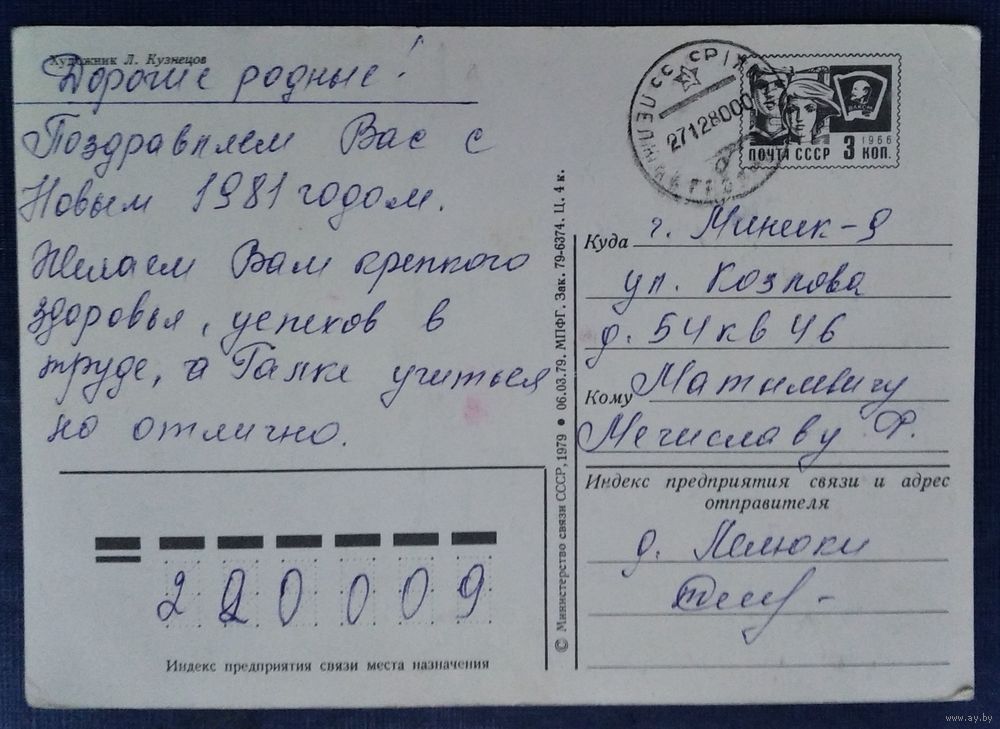 Художник Л. Кузнецов
Дорогие родные!
Поздравляем Вас с
Новым 1981 годом.
Желаем Вам крепкого
здоровья, успехов в
труде, а Галке учиться
на отлично.
СССР
27128000
ВЛКСМ
1966
ПОЧТА СССР 3 КОП.
Куда г. Минск-9
ул. Козлова
д. 54 кв 46
Кому
Мечиславу Ф.
Индекс предприятия связи и адрес
отправителя
д.
220009
Индекс предприятия связи места назначения
© Министерство связи СССР, 1979 ● 06.03.79. МПФГ. Зак. 79-6374. Ц. 4 к.
www.ay.by